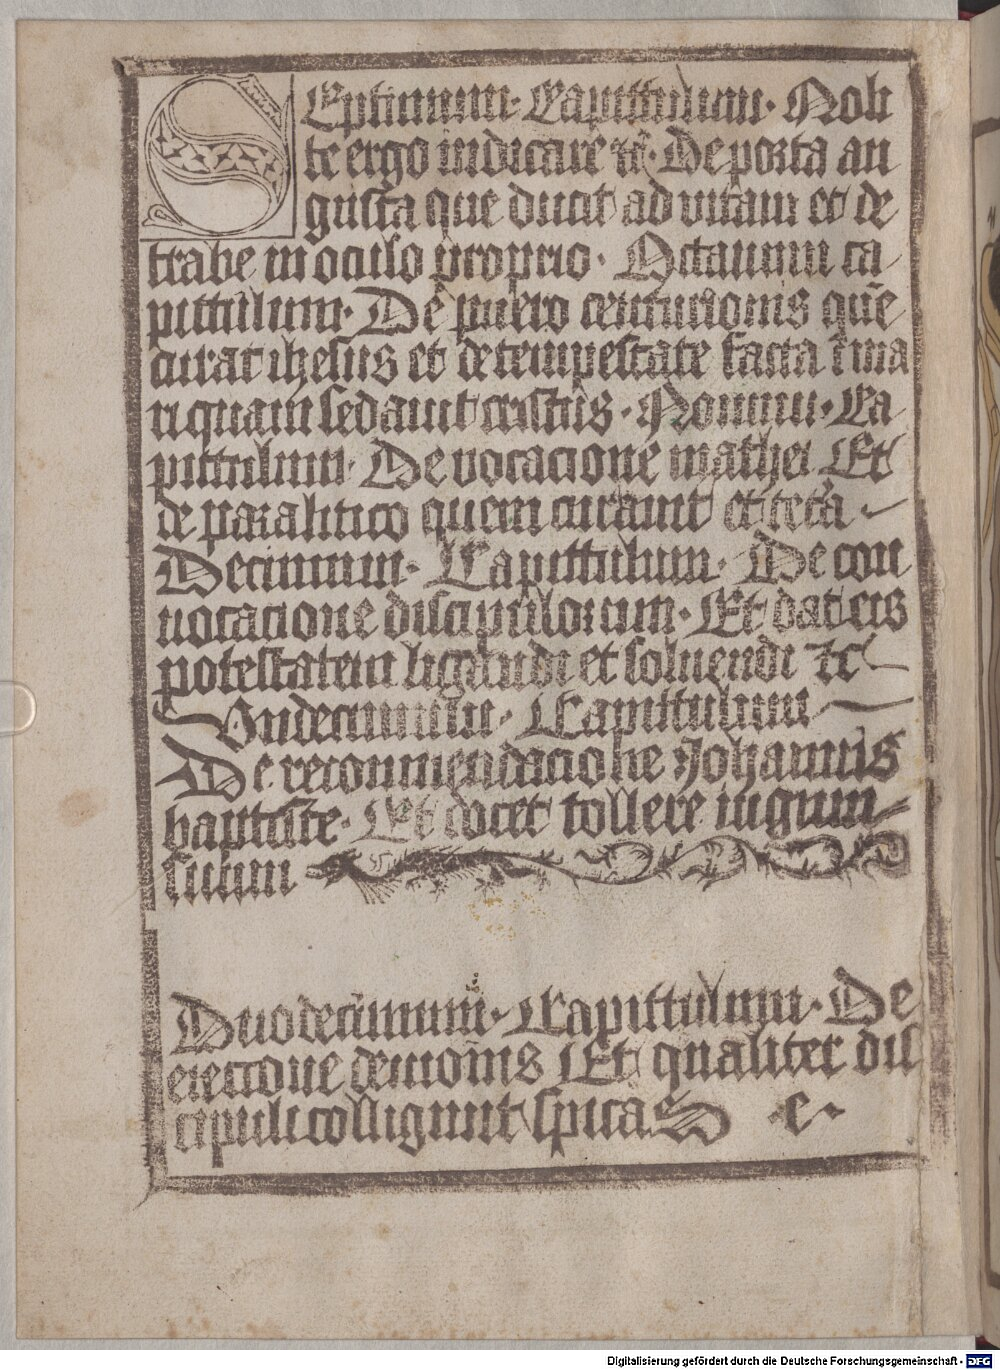 SEptimum · Capittulum · Noli
te ergo iudicare ꝛc̄ · De porta an
gusta que ducit ad vitam et de
trabe in oculo proprio · Octauum ca
pittulum · De puero centurionis quē
curat ihesus et de tempestate facta ī ma
ri quam sedauit cristus · Nonum · Ca
pittulum · De vocacione mathei Et
de paralitico quem curauit et cetᷓa
Decimum · Capittulum · De con
uocacione discipulorum · Et dat eis
potestatem ligandi et soluendi ꝛc
Vndecimum · Capittulum
De recommendacione Johannis
baptiste · Et docet tollere iugum
suum
Duodecimum · Capittulum · De
eiectione demonis Et qualiter dis
cipuli collignut spicas · e ·
Digitalisierung gefördert durch die Deutsche Forschungsgemeinschaft - DFG